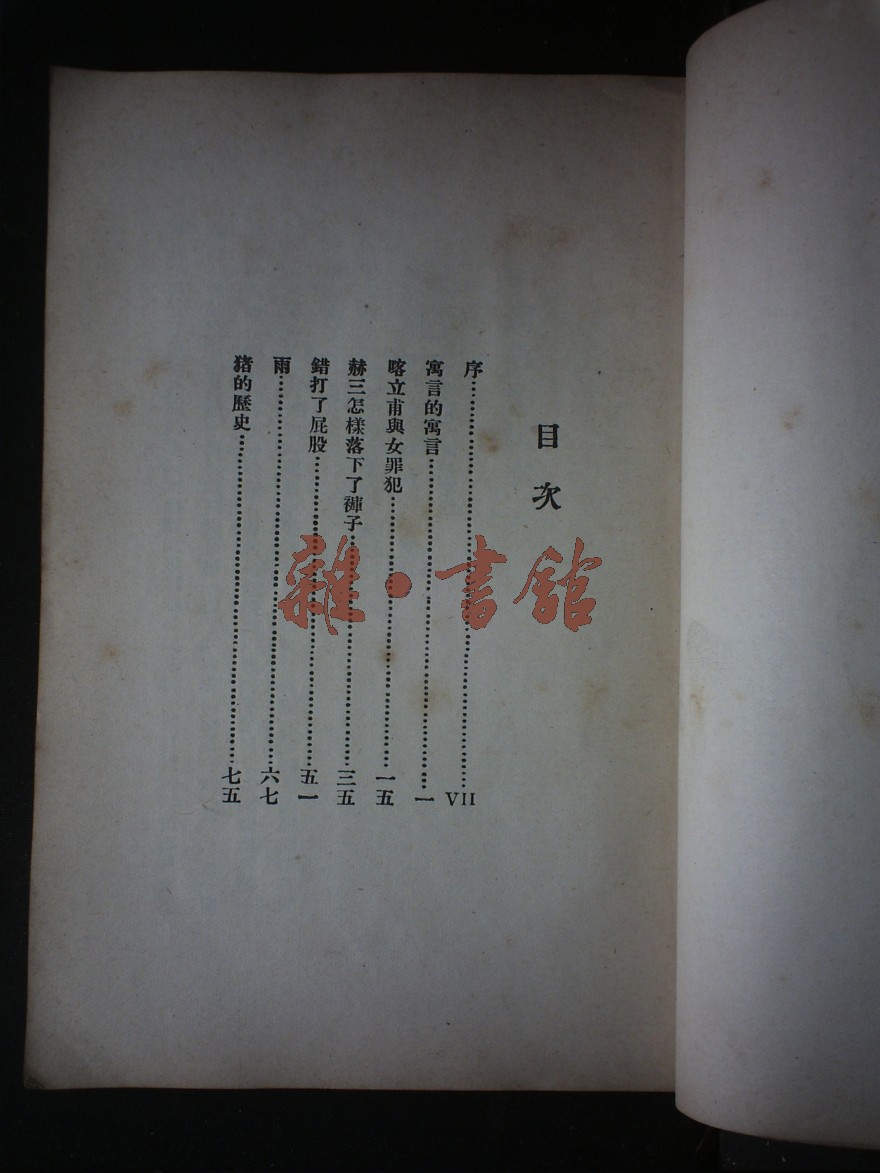 目次
序……VII
寓言的寓言……一
喀立甫與女罪犯……一五
赫三怎樣落下了褲子……三五
錯打了屁股……五一
雨……六七
猪的歷史……七五
雜·書館